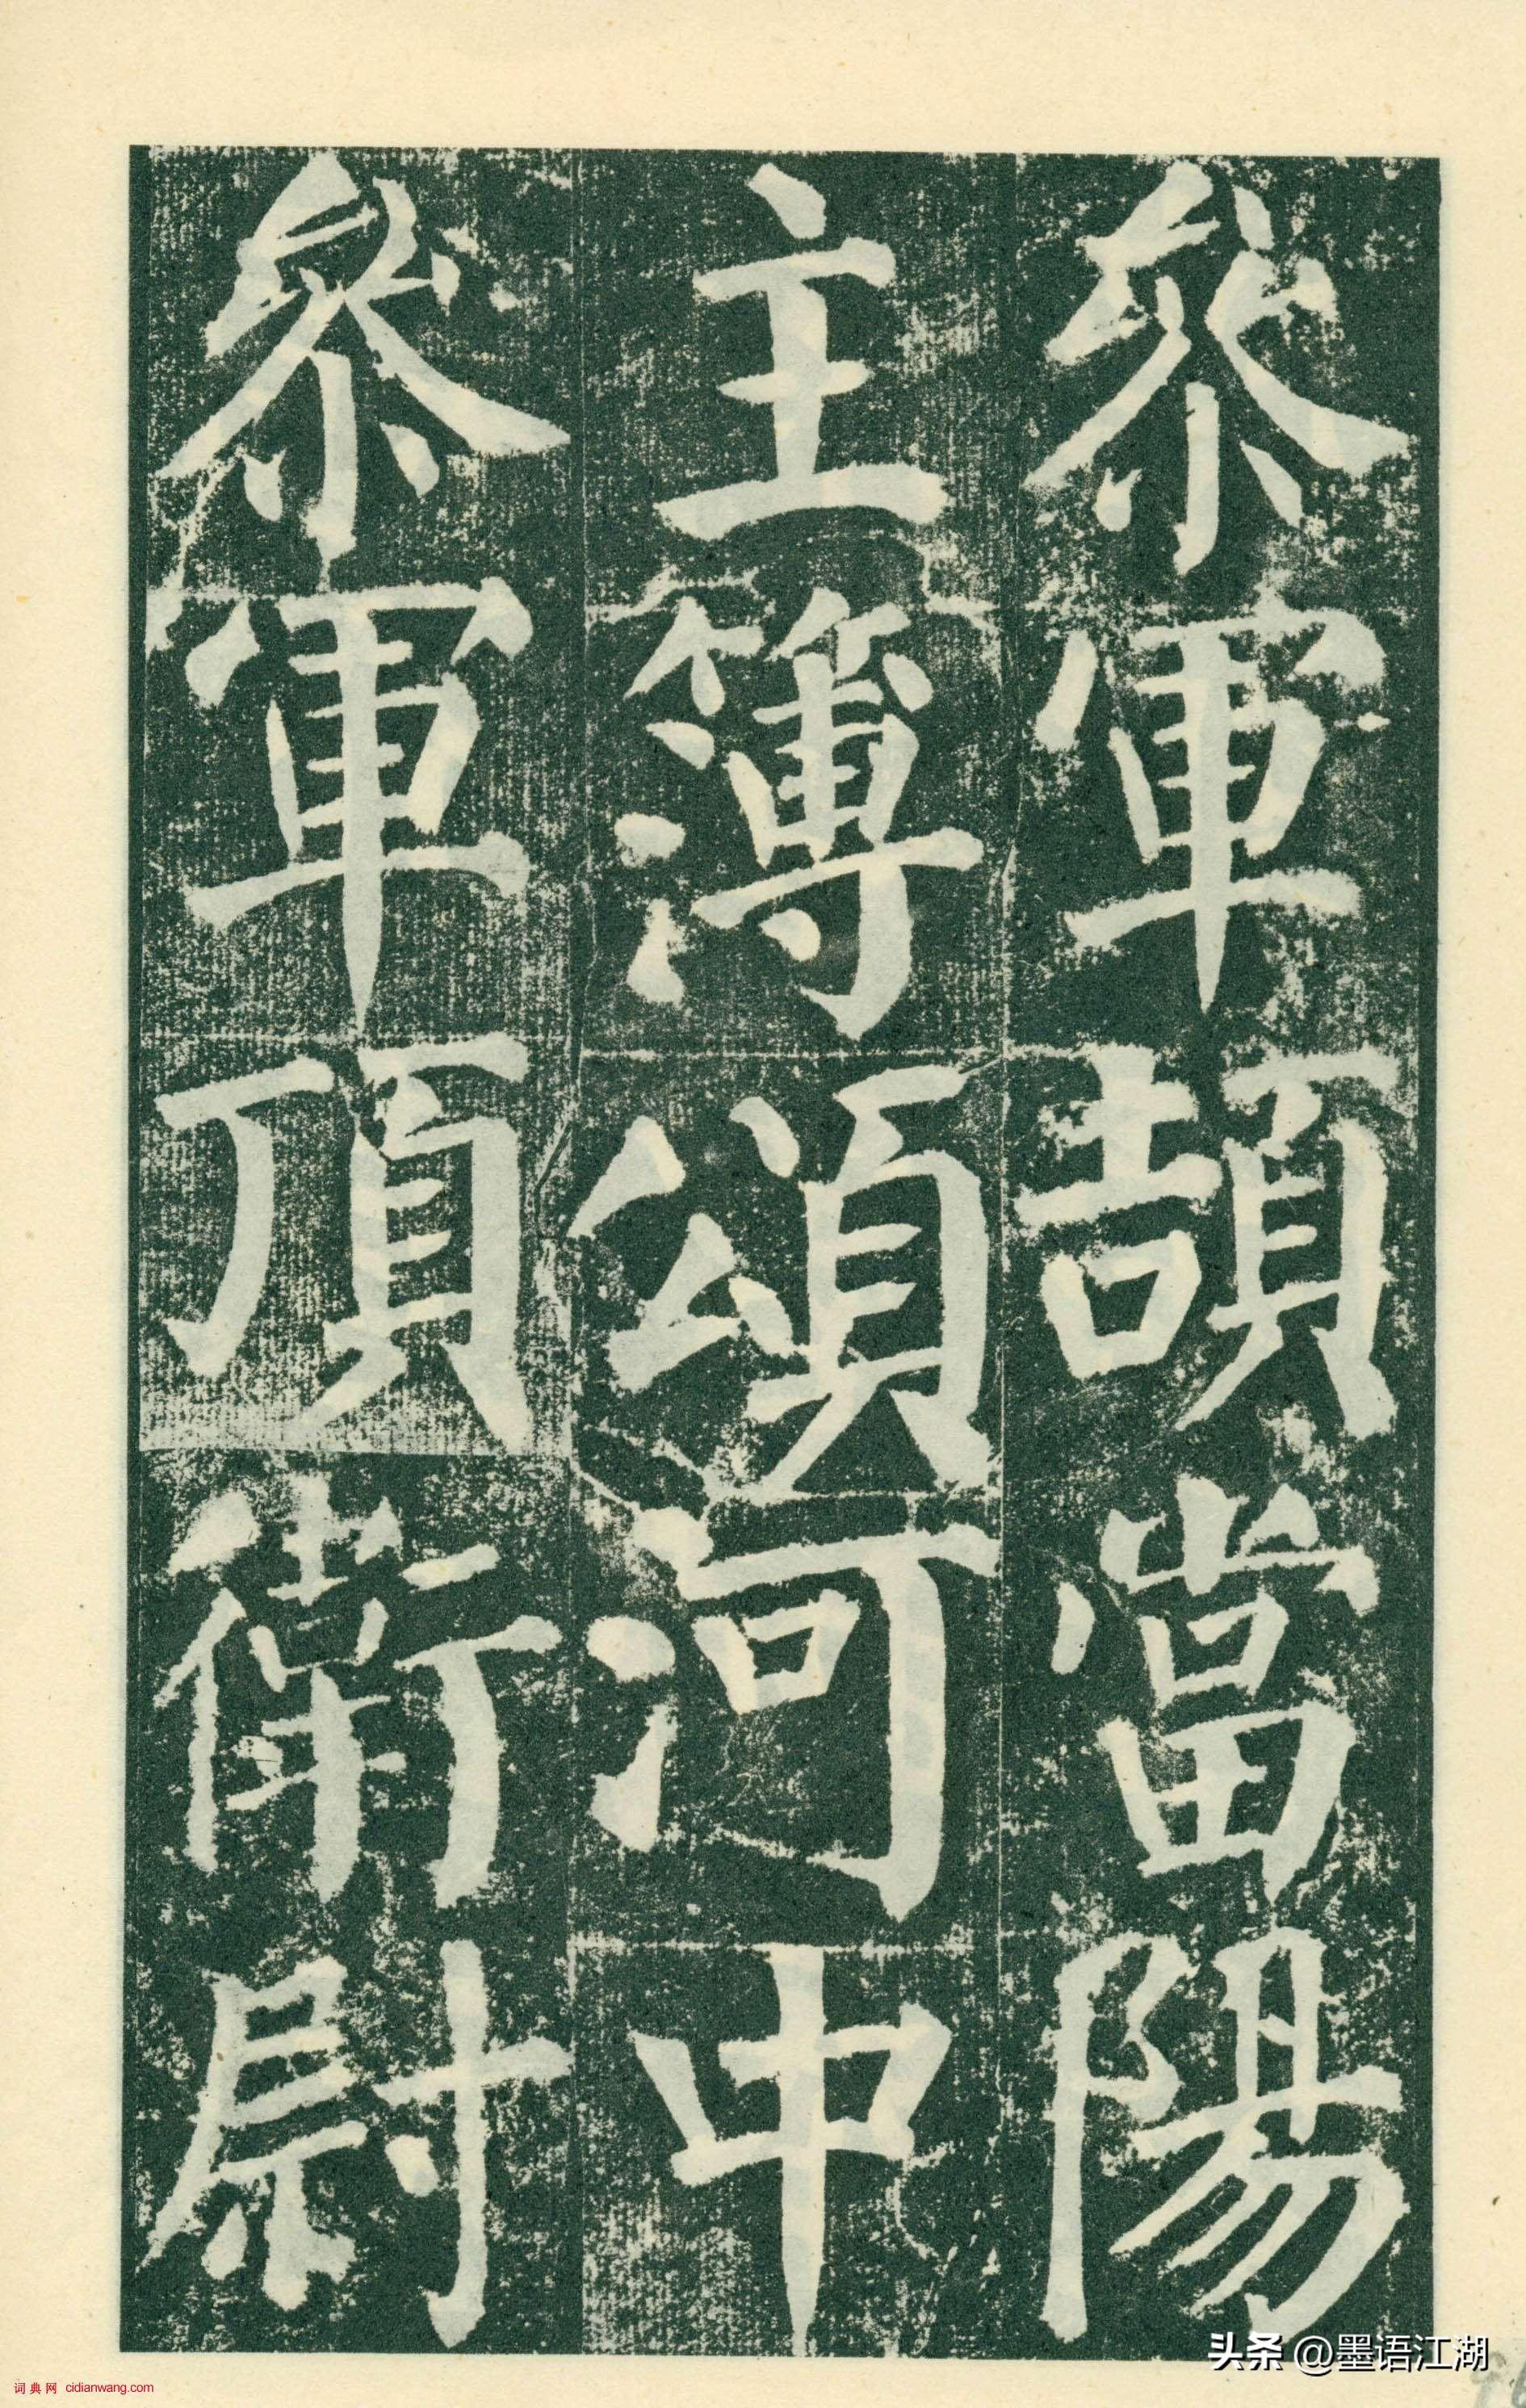 叅軍頡當陽
主簿頌河中
叅軍頂衛尉
头条 @墨语江湖
词典网 cidianwang.com